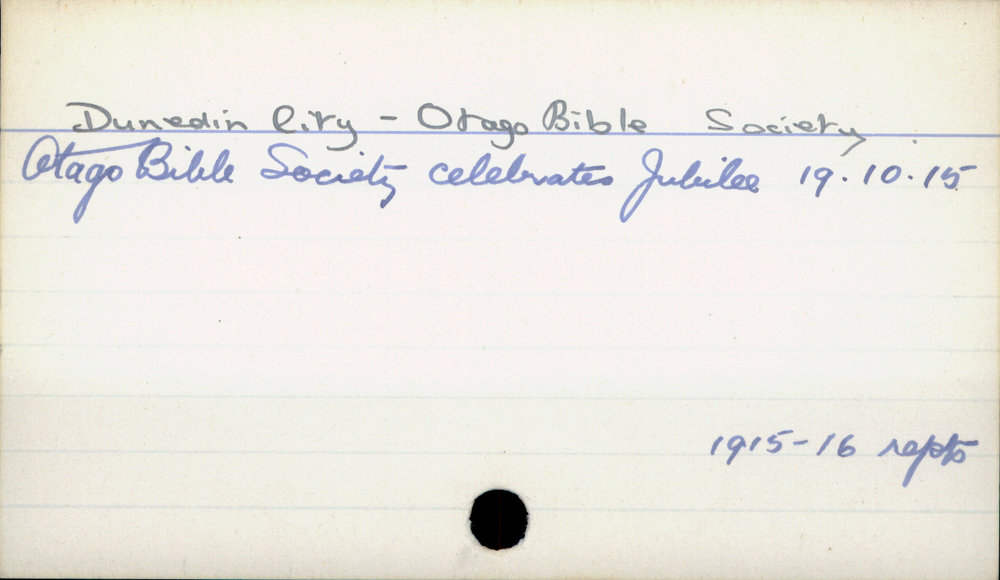 Dunedin City - Otago Bible Society
Otago Bible Society celebrates Jubilee 19.10.15
1915-16 repts